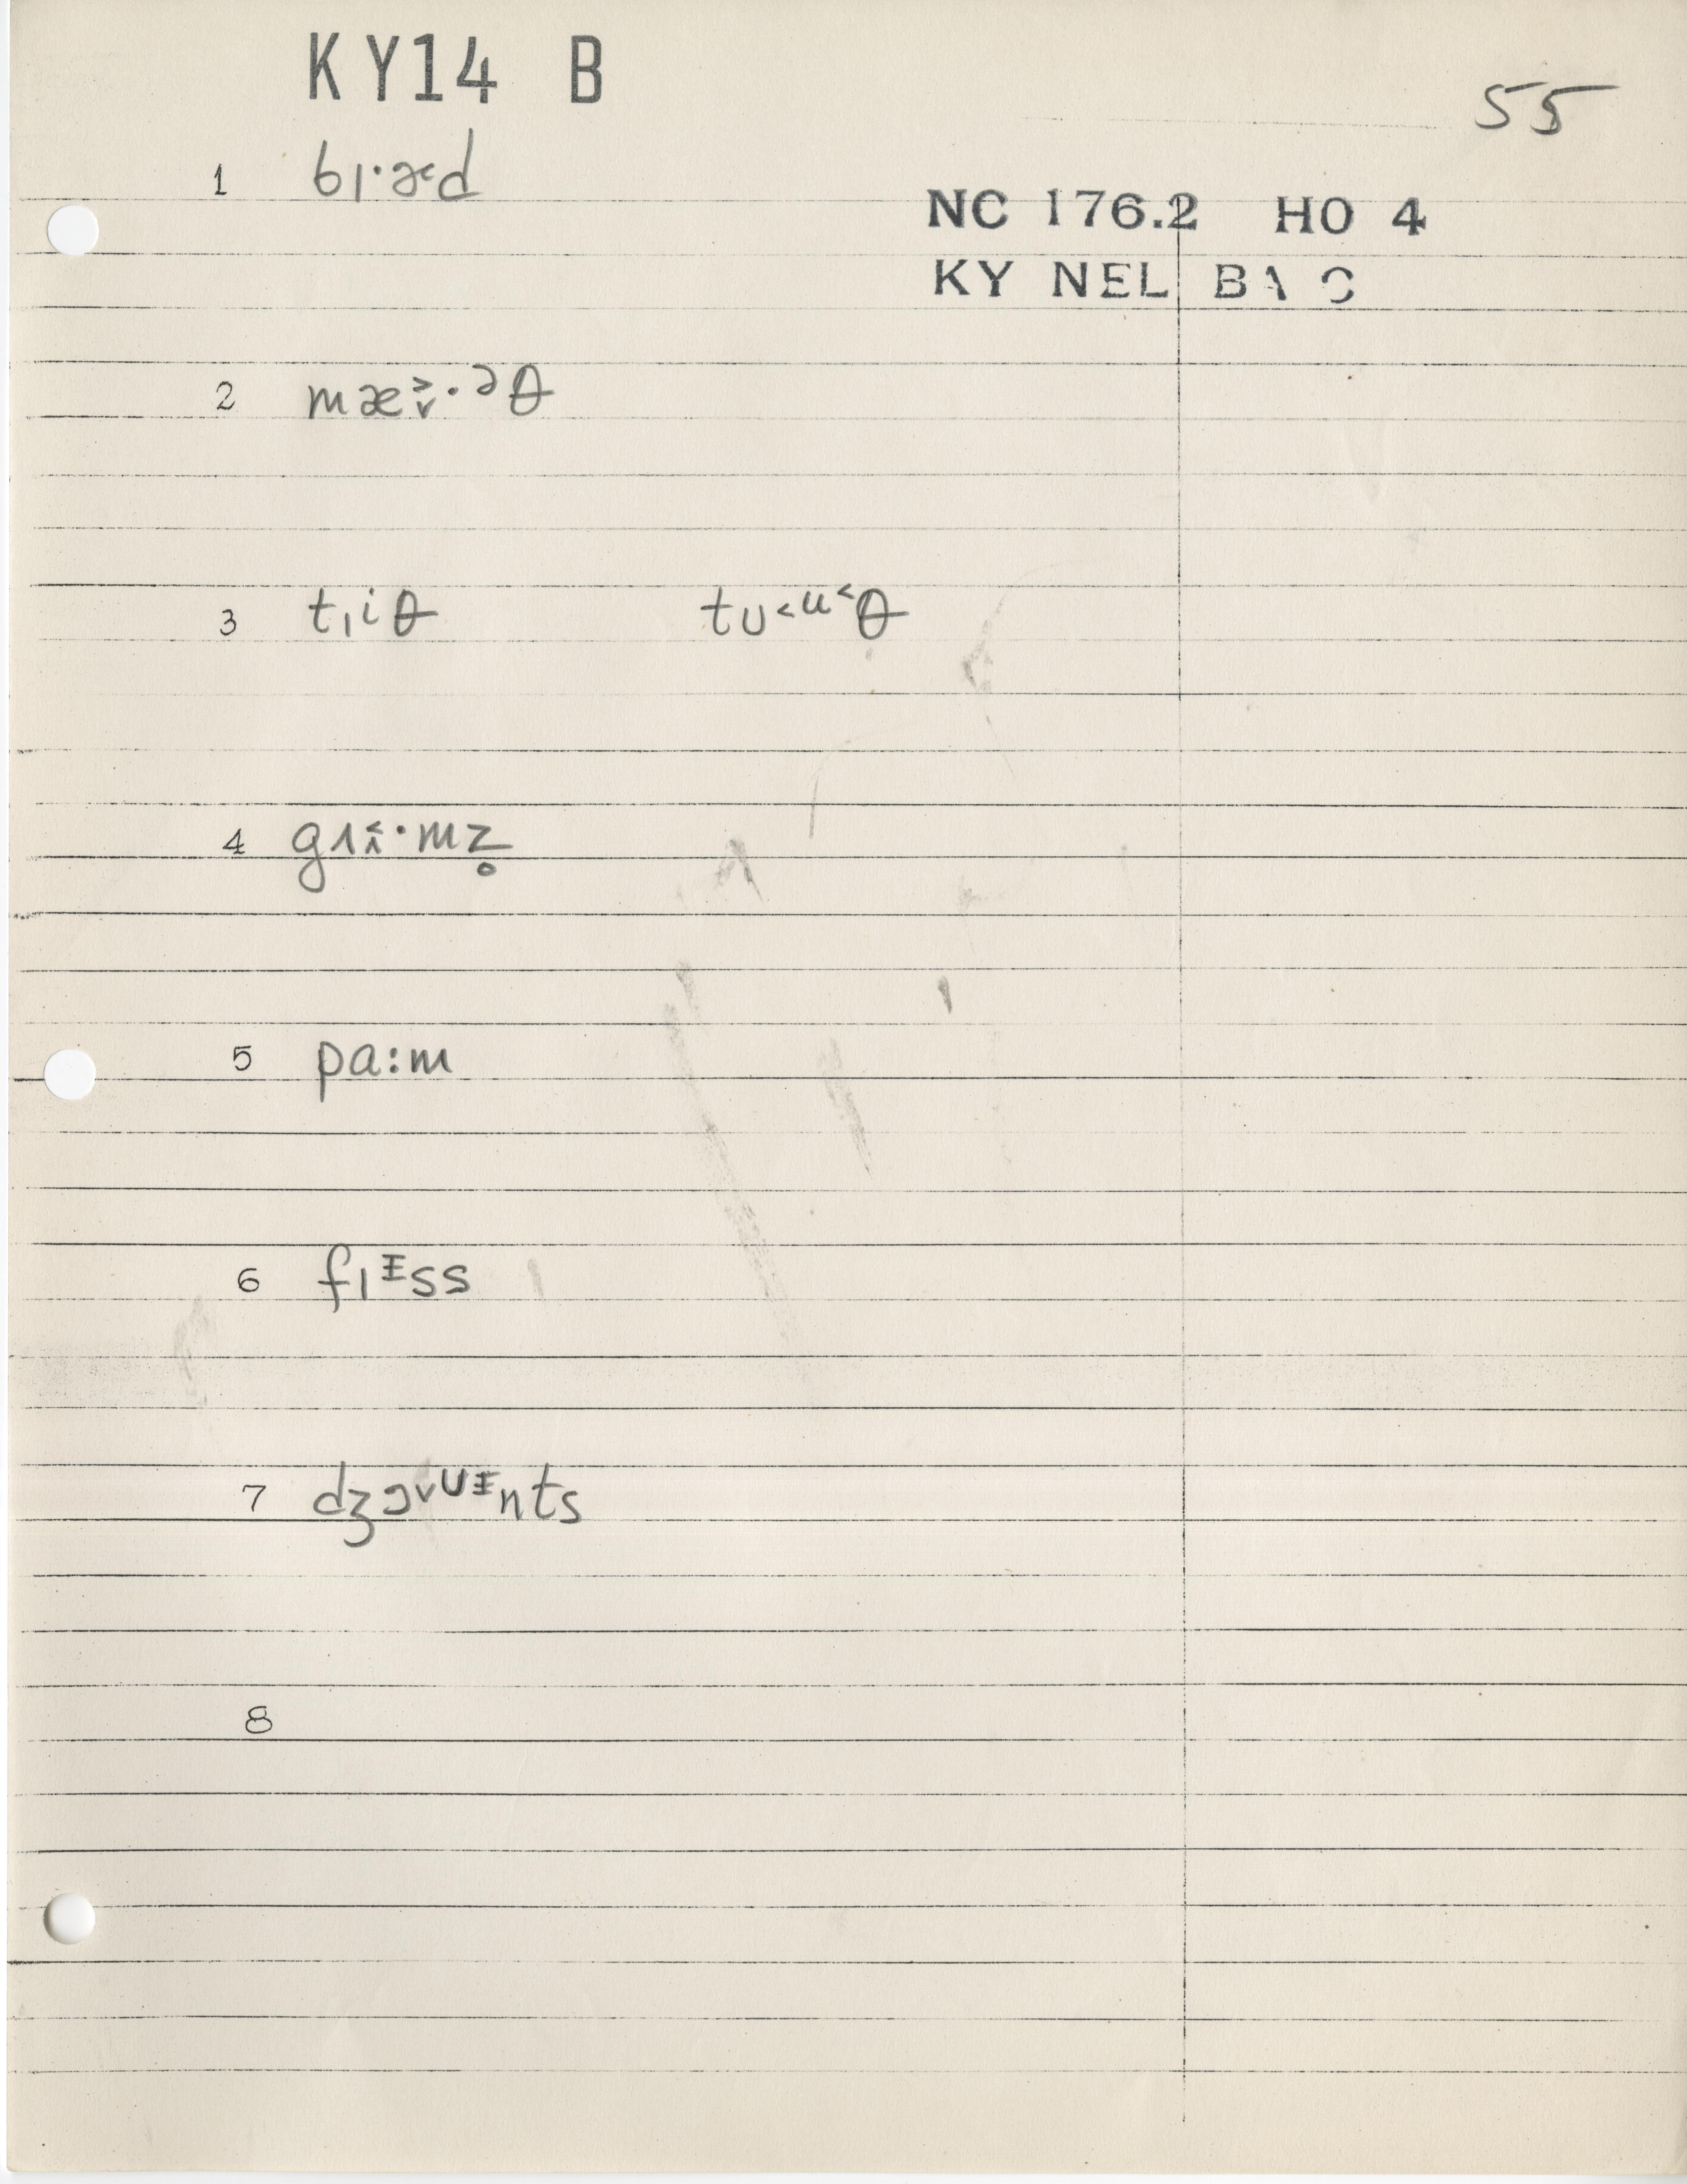 KY14 B
55
1 bɪ·ə˞d
NC 176.2 HO 4
KY NEL BA C
2 mæ̬˃·ᵊθ
3 tɪiθ tʊ˂ᵘ˂θ
4 gʌ˄˂·mz̥
5 pa:m
6 fɪᵻss
7 dʒɔ˅ᶷᵻnts
8